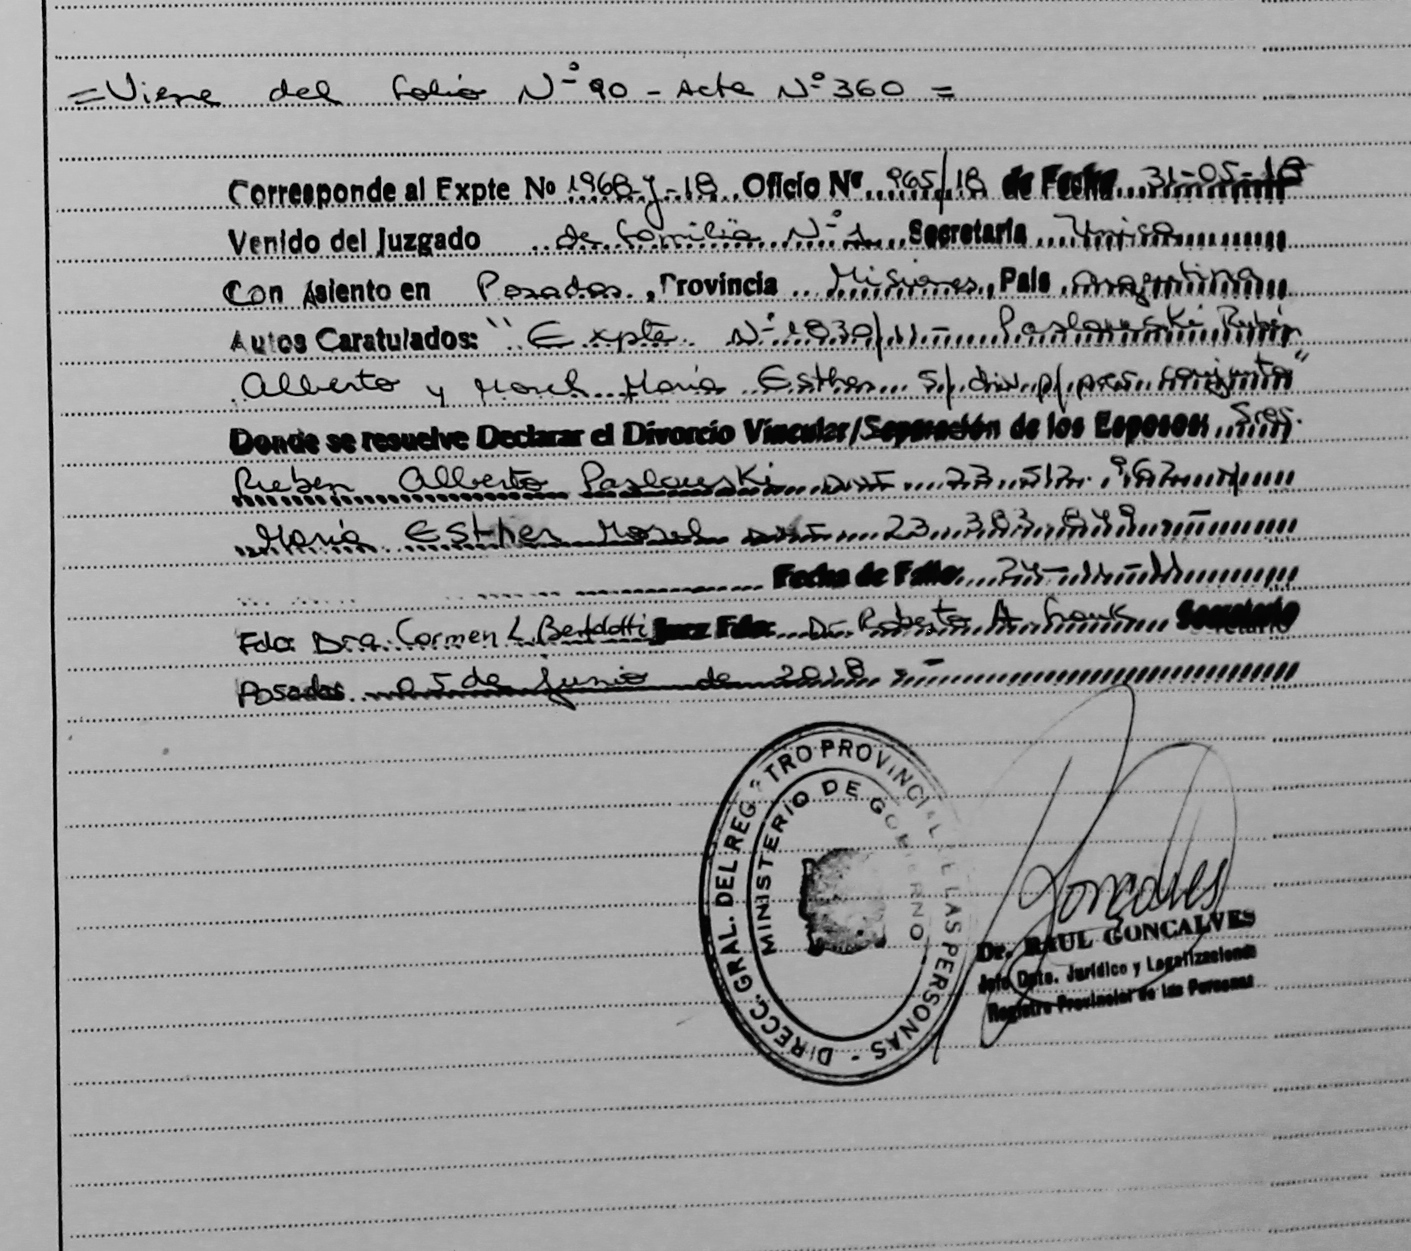 =Viene del folio Nº 90 - Acta Nº 360 =
Corresponde al Expte Nº 1968-y-18 Oficio Nº 965/18 de Fecha 31-05-18
Venido del Juzgado de Familia Nº 1 Secretaria Unica
Con Asiento en Posadas, Provincia Misiones, País Argentina
Autos Caratulados: "Expte Nº 1830/11 - Paslouski Rubén
Alberto y Morel María Esther s/ div. p/ pres. conjunta"
Donde se resuelve Declarar el Divorcio Vincular/Separación de los Esposos: Sres.
Ruben Alberto Paslouski DNI 22.512.962 y
María Esther Morel DNI 23.383.849 -
Fecha de Fallo: 24-11-11
Fdo: Dra. Carmen L. Bertolotti Juez Fdo: Dr. Roberto A. Secretario
Posadas 05 de Junio de 2018 -
DIRECC. GRAL. DEL REGISTRO PROVINCIAL DE LAS PERSONAS -
MINISTERIO DE GOBIERNO
Gonçalves
Dr. RAUL GONCALVES
Jefe Dpto. Jurídico y Legalizaciones
Registro Provincial de las Personas